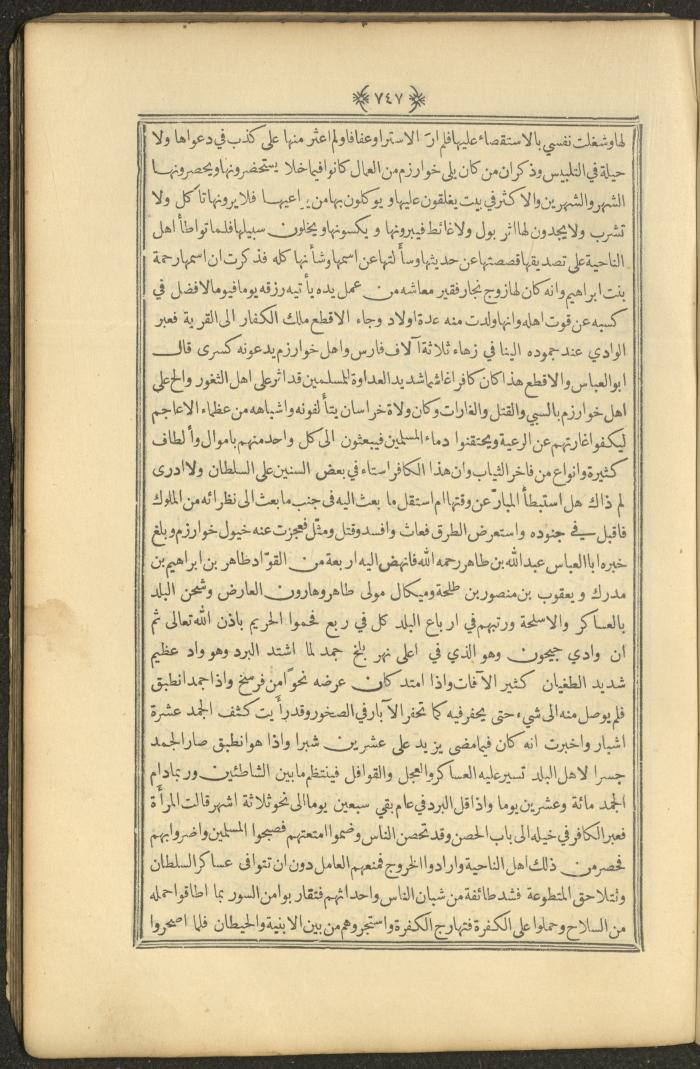 ٧٤٧
لها وشغلت نفسي بالاستقصاء عليها فلم ار الاسترا وعفافا ولم اعثر منها على كذب في دعواها ولا
حيلة في التلبيس وذكر ان من كان يلى خوارزم من العمال كانوا فيما خلا يستحضرونها ويحصرونها
الشهر والشهرين والاكثر في بيت يغلقون عليها ويوكلون بها من يراعيها فلا يرونها تاكل ولا
تشرب ولا يجدون لها اثر بول ولا غائط فيبرونها ويكسونها ويخلون سبيلها فلما تواطأ اهل
الناحية على تصديقها قصصتها عن حديثها وسألتها عن اسمها وشأنها كله فذكرت ان اسمها رحمة
بنت ابراهيم وانه كان لها زوج نجار فقير معاشه من عمل يده يأتيه رزقه يوما فيوما لا فضل في
كسبه عن قوت اهله وانها ولدت منه عدة اولاد وجاء الاقطع ملك الكفار الى القرية فعبر
الوادي عند جموده الينا في زهاء ثلاثة آلاف فارس واهل خوارزم يدعونه كسرى قال
ابو العباس والاقطع هذا كان كافرا غاشما شديد العداوة للمسلمين قد اثر على اهل الثغور والح على
اهل خوارزم بالسبي والقتل والغارات وكان ولاة خراسان يتألفونه واشباهه من عظماء الاعاجم
ليكفوا غارتهم عن الرعية ويحتقنوا دماء المسلمين فيبعثون الى كل واحد منهم باموال وألطاف
كثيرة وانواع من فاخر الثياب وان هذا الكافر استاء في بعض السنين على السلطان ولا ادرى
لم ذاك هل استبطأ المبارّ عن وقتها ام استقل ما بعث اليه في جنب ما بعث الى نظرائه من الملوك
فاقبل في جنوده واستعرض الطرق فعاث وافسد وقتل ومثّل فعجزت عنه خيول خوارزم وبلغ
خبره ابا العباس عبدالله بن طاهر رحمه الله فانهض اليه اربعة من القوّاد طاهر بن ابراهيم بن
مدرك ويعقوب بن منصور بن طلحة وميكال مولى طاهر وهارون العارض وشحن البلد
بالعساكر والاسلحة ورتبهم في ارباع البلد كل في ربع فحموا الحريم باذن الله تعالى ثم
ان وادي جيحون وهو الذي في اعلى نهر بلخ جمد لما اشتد البرد وهو واد عظيم
شديد الطغيان كثير الآفات واذا امتد كان عرضه نحوًا من فرسخ واذا جمد انطبق
فلم يوصل منه الى شيء حتى يحفر فيه كما تحفر الآبار في الصخور وقد رأيت كثف الجمد عشرة
اشبار واخبرت انه كان فيما مضى يزيد على عشرين شبرا واذا هو انطبق صار الجمد
جسرا لاهل البلد تسير عليه العساكر والعجل والقوافل فينتظم ما بين الشاطئين وربما دام
الجمد مائة وعشرين يوما واذا قل البرد في عام بقي سبعين يوما الى نحو ثلاثة اشهر قالت المرأة
فعبر الكافر في خيله الى باب الحصن وقد تحصن الناس وضموا امتعتهم فصبحوا المسلمين واضروا بهم
فحصر من ذلك اهل الناحية وارادوا الخروج فمنعهم العامل دون ان تتوافى عساكر السلطان
وتتلاحق المتطوعة فشد طائفة من شبان الناس واحداثهم فتقاربوا من السور بما اطاقوا حمله
من السلاح وحملوا على الكفرة فتهارج الكفرة واستجروهم من بين الابنية والحيطان فلما اصحروا